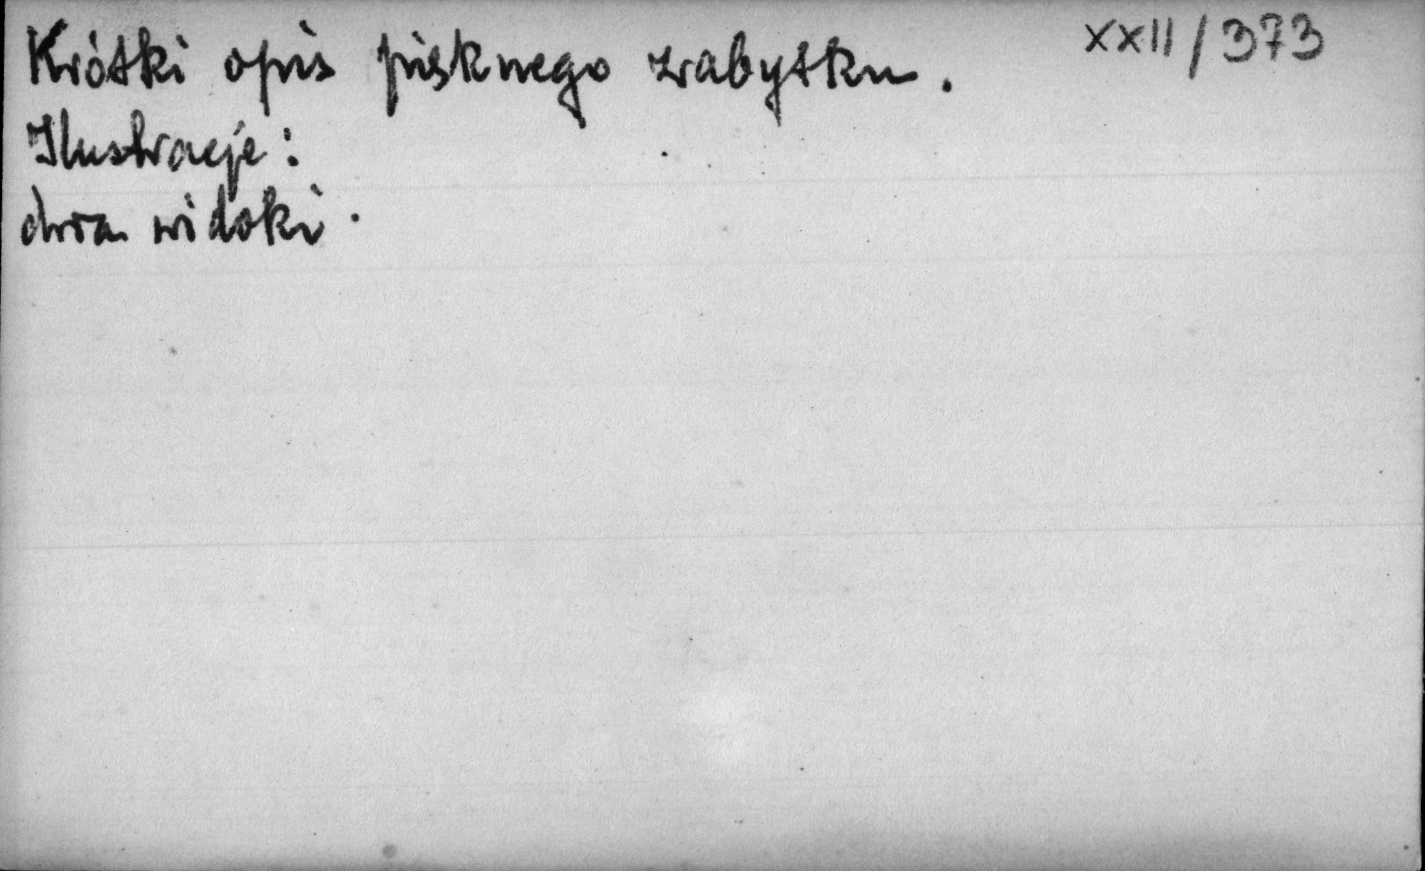 XXII/373
Krótki opis pięknego zabytku.
Ilustracje:
dwa widoki.